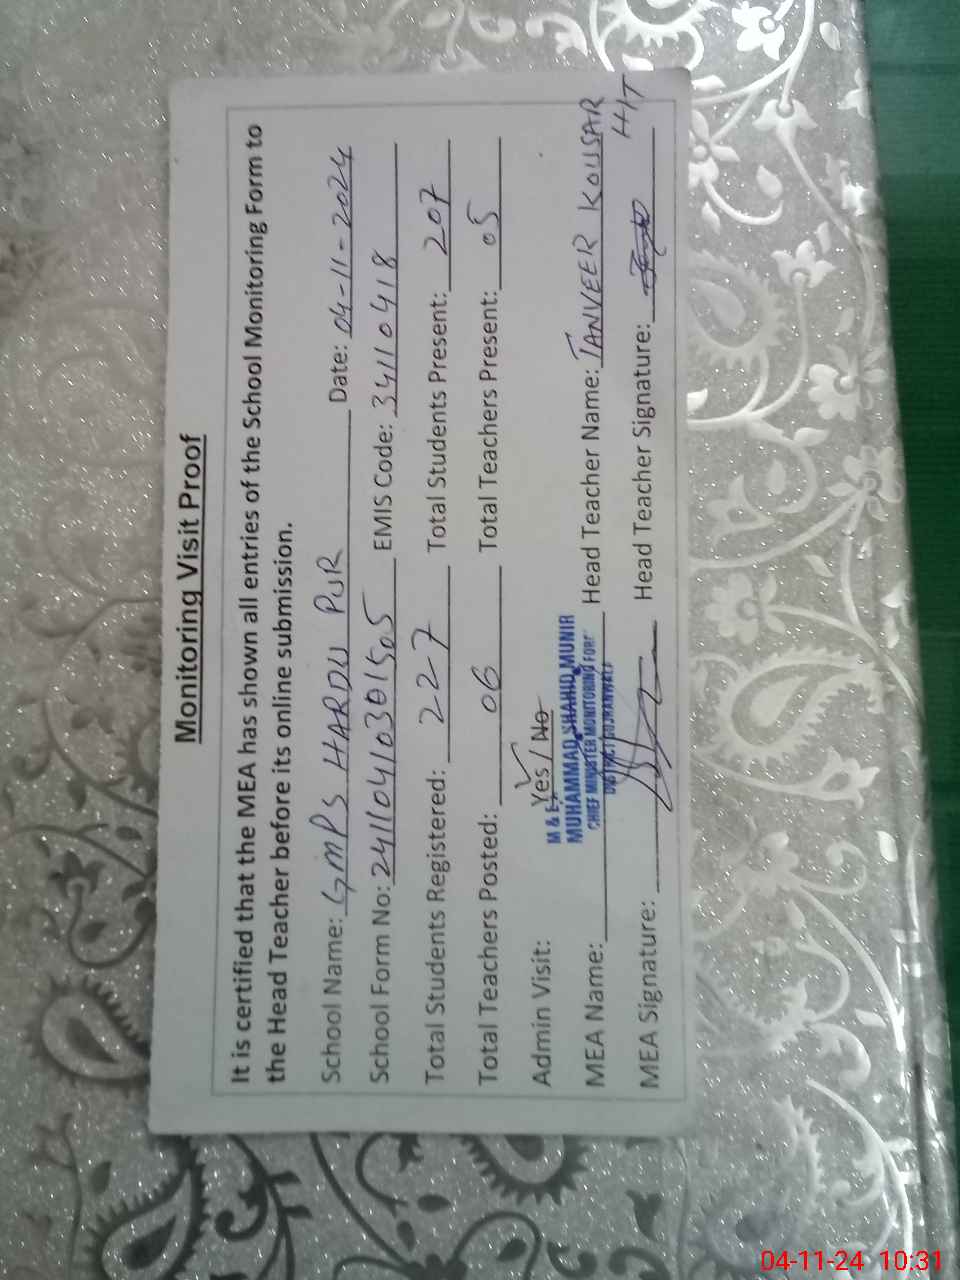 Monitoring Visit Proof
It is certified that the MEA has shown all entries of the School Monitoring Form to
the Head Teacher before its online submission.
School Name: GMPS HARDU PUR Date: 04-11-2024
School Form No: 24110410301505 EMIS Code: 34110418
Total Students Registered: 227 Total Students Present: 207
Total Teachers Posted: 06 Total Teachers Present: 05
Admin Visit: Yes / No
M & E
MUHAMMAD SHAHID MUNIR
CHIEF MINISTER MONITORING FORC
DISTRICT GUJRANWALA
MEA Name: Head Teacher Name: TANVEER KOUSAR
MEA Signature: Head Teacher Signature: H/T
04-11-24 10:31